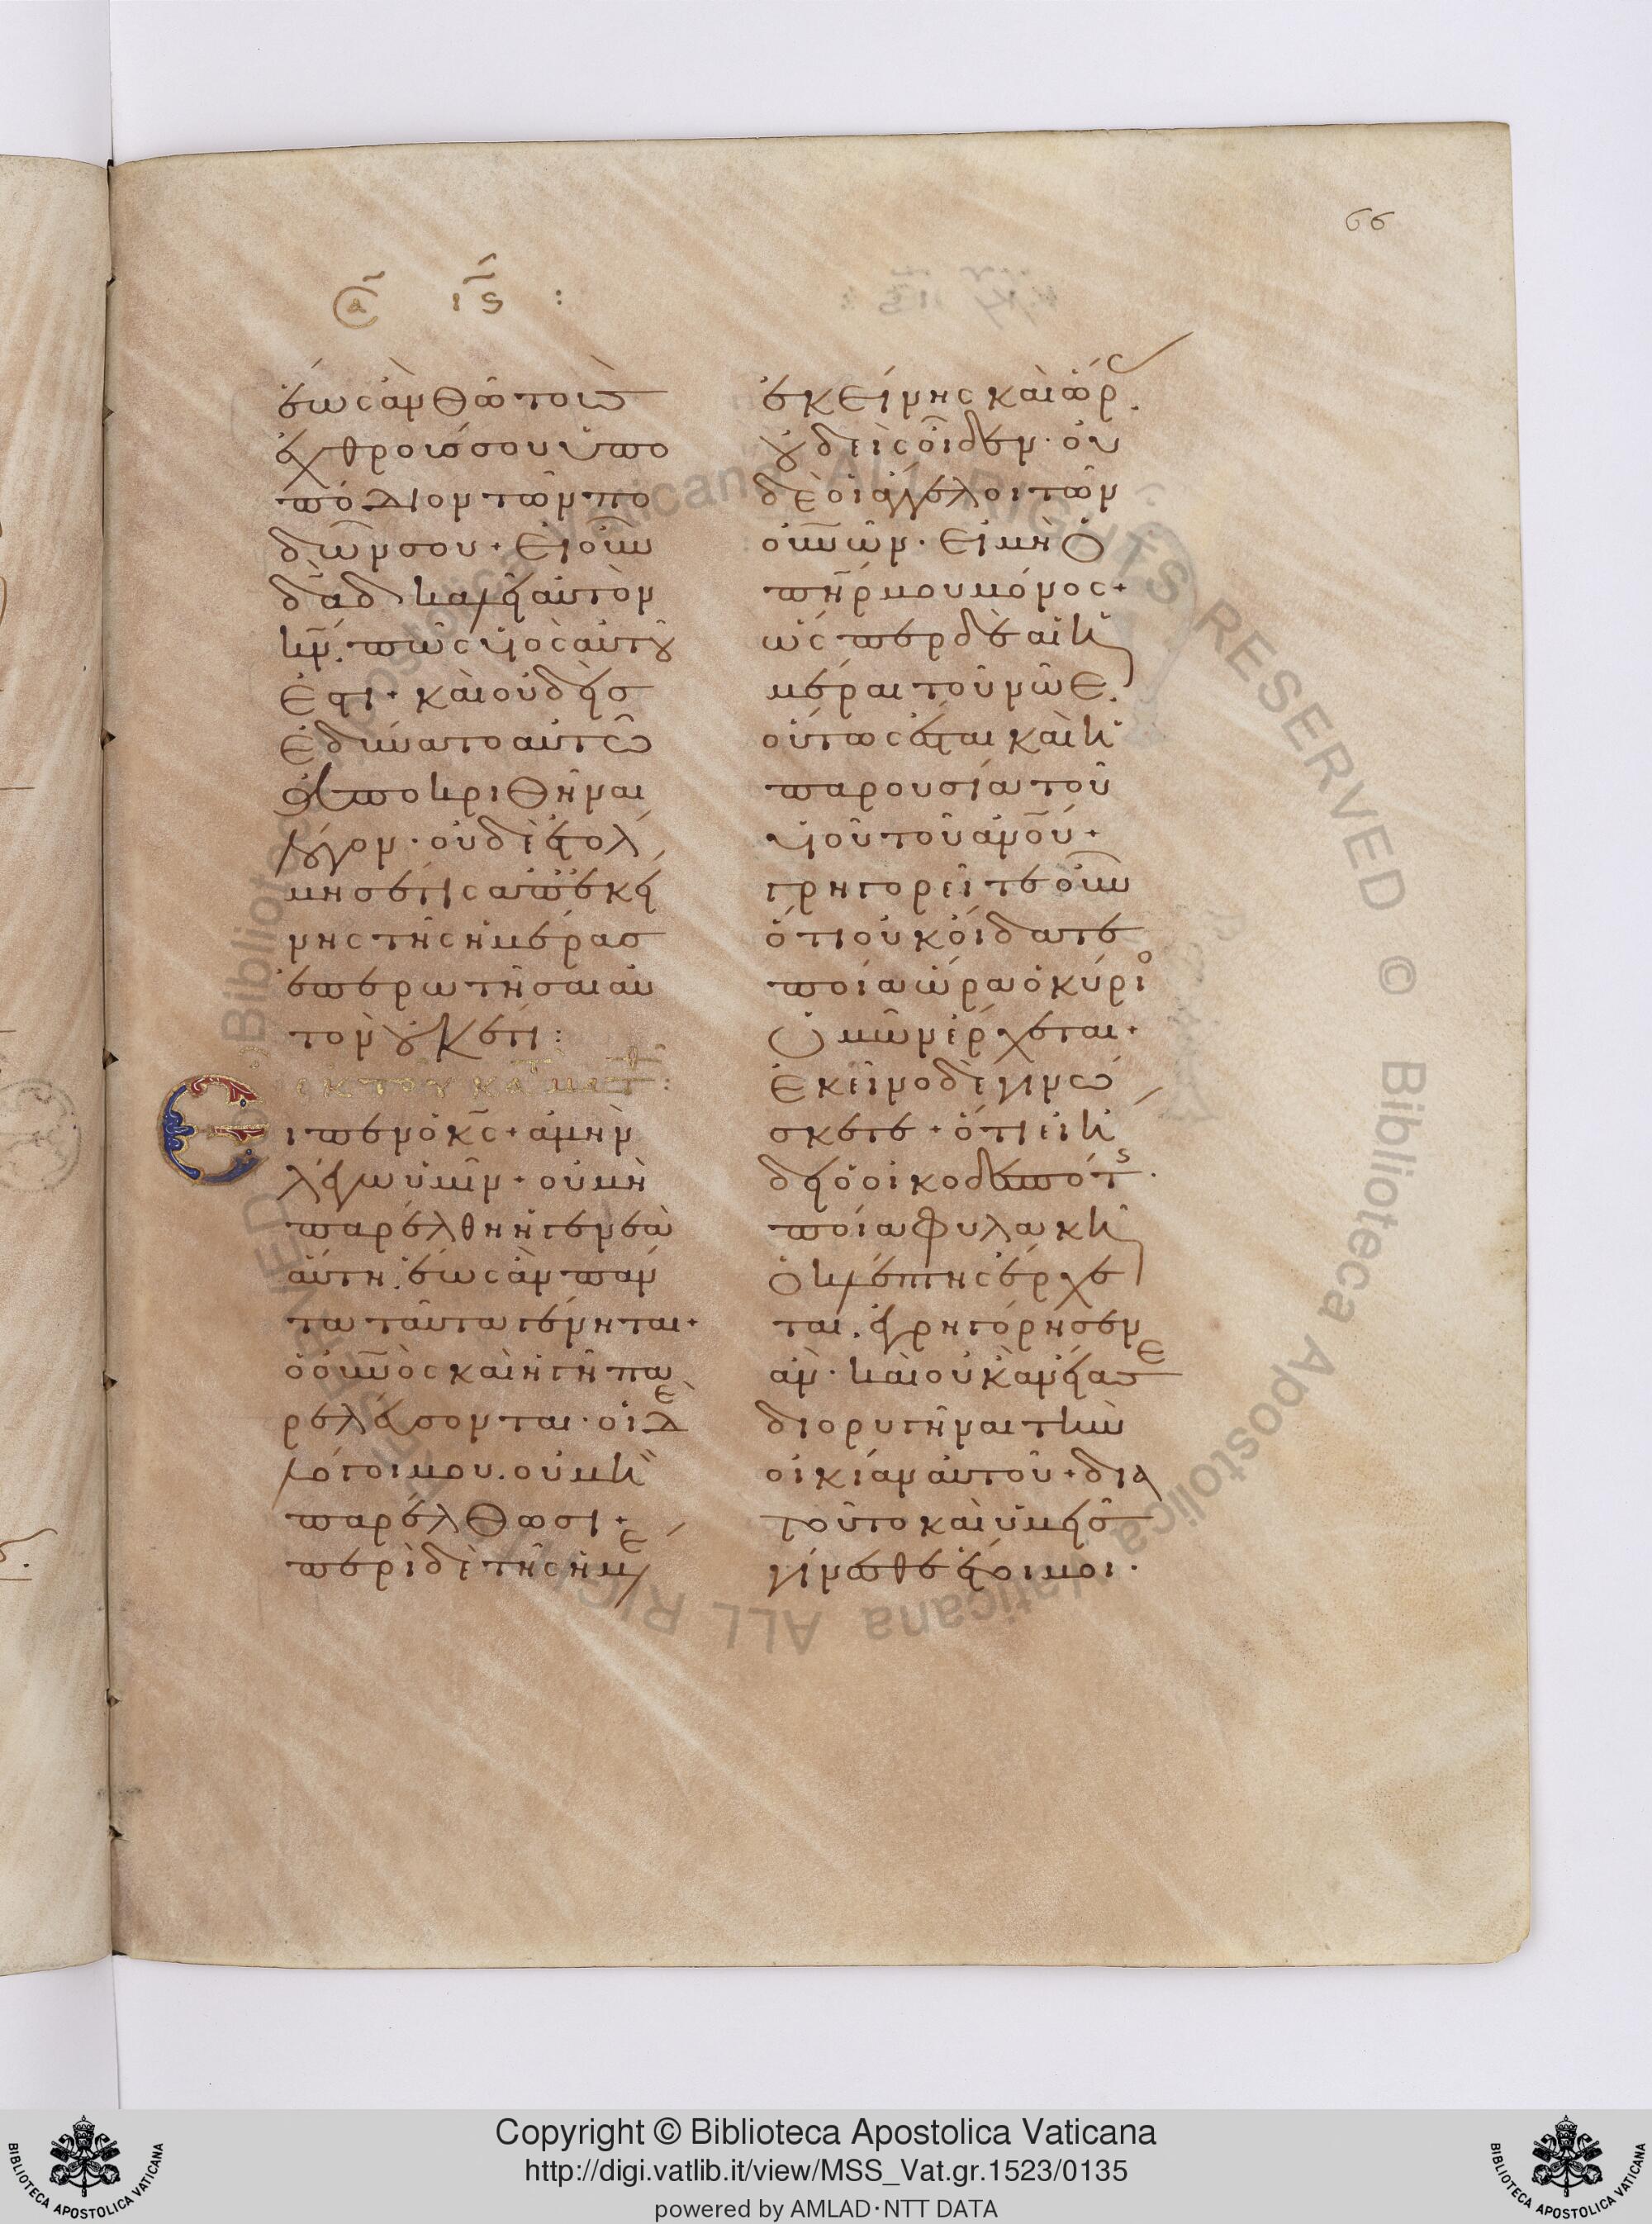 66
α ιϛ :
ἕως ἂν θῶ τοὺς
ἐχθρούς σου ὑπο
πόδιον τῶν πο
δῶν σου + εἰ οὖν
δᾱδ καλεῖ αὐτὸν
κν̄. πῶς υἱὸς αὐτοῦ
ἐστι + καὶ οὐδεὶς
ἐδύνατο αὐτῶ
ἀποκριθῆναι
λόγον · οὐδὲ ἐτόλ
μησέ τις ἀπ' ἐκεί
νης τῆς ἡμέρας
ἐπερωτῆσαι αὐ
τὸν οὐκέτι :
ἐκ τοῦ κατ ματθ :
Εἶπεν ὁ κς̄ + ἀμὴν
λέγω ὑμῖν + οὐ μὴ
παρέλθη ἡ γενεὰ
αὕτη. ἕως ἂν πάν
τα ταῦτα γένηται +
ὁ οὐνὸς καὶ ἡ γῆ πα
ρελεύσονται · οἱ δὲ
λόγοι μου. οὐ μὴ
παρέλθωσι +
περὶ δὲ τῆς ἡμε
ἐκείνης καὶ ὥρς.
οὐδεὶς οἶδεν · οὐ
δὲ οἱ ἄγγελοι τῶν
οὐνῶν · εἰ μὴ ὁ
πη̄ρ μου μόνος +
ὥσπερ δὲ αἱ ἡ
μέραι τοῦ νῶε.
οὕτως ἔσται καὶ ἡ
παρουσία τοῦ
υἱοῦ τοῦ ἀνο̄υ +
γρηγορεῖτε οὖν
ὅτι οὐκ οἴδατε
ποία ὥρα ὁ κύριο
ὑμῶν ἔρχεται +
ἐκεῖνο δὲ γινώ
σκετε + ὅτι εἰ ἤ
δει ὁ οἰκοδεσπότς ·
ποία φυλακῆ
ὁ κλέπτης ἔρχε
ται. ἐγρηγόρησεν
ἂν · καὶ οὐκ ἂν εἴασε
διορυγῆναι τὴν
οἰκίαν αὐτοῦ + δια
τοῦτο καὶ ὑμεῖς
γίνεσθε ἕτοιμοι ·
Copyright © Biblioteca Apostolica Vaticana
http://digi.vatlib.it/view/MSS_Vat.gr.1523/0135
powered by AMLAD·NTT DATA